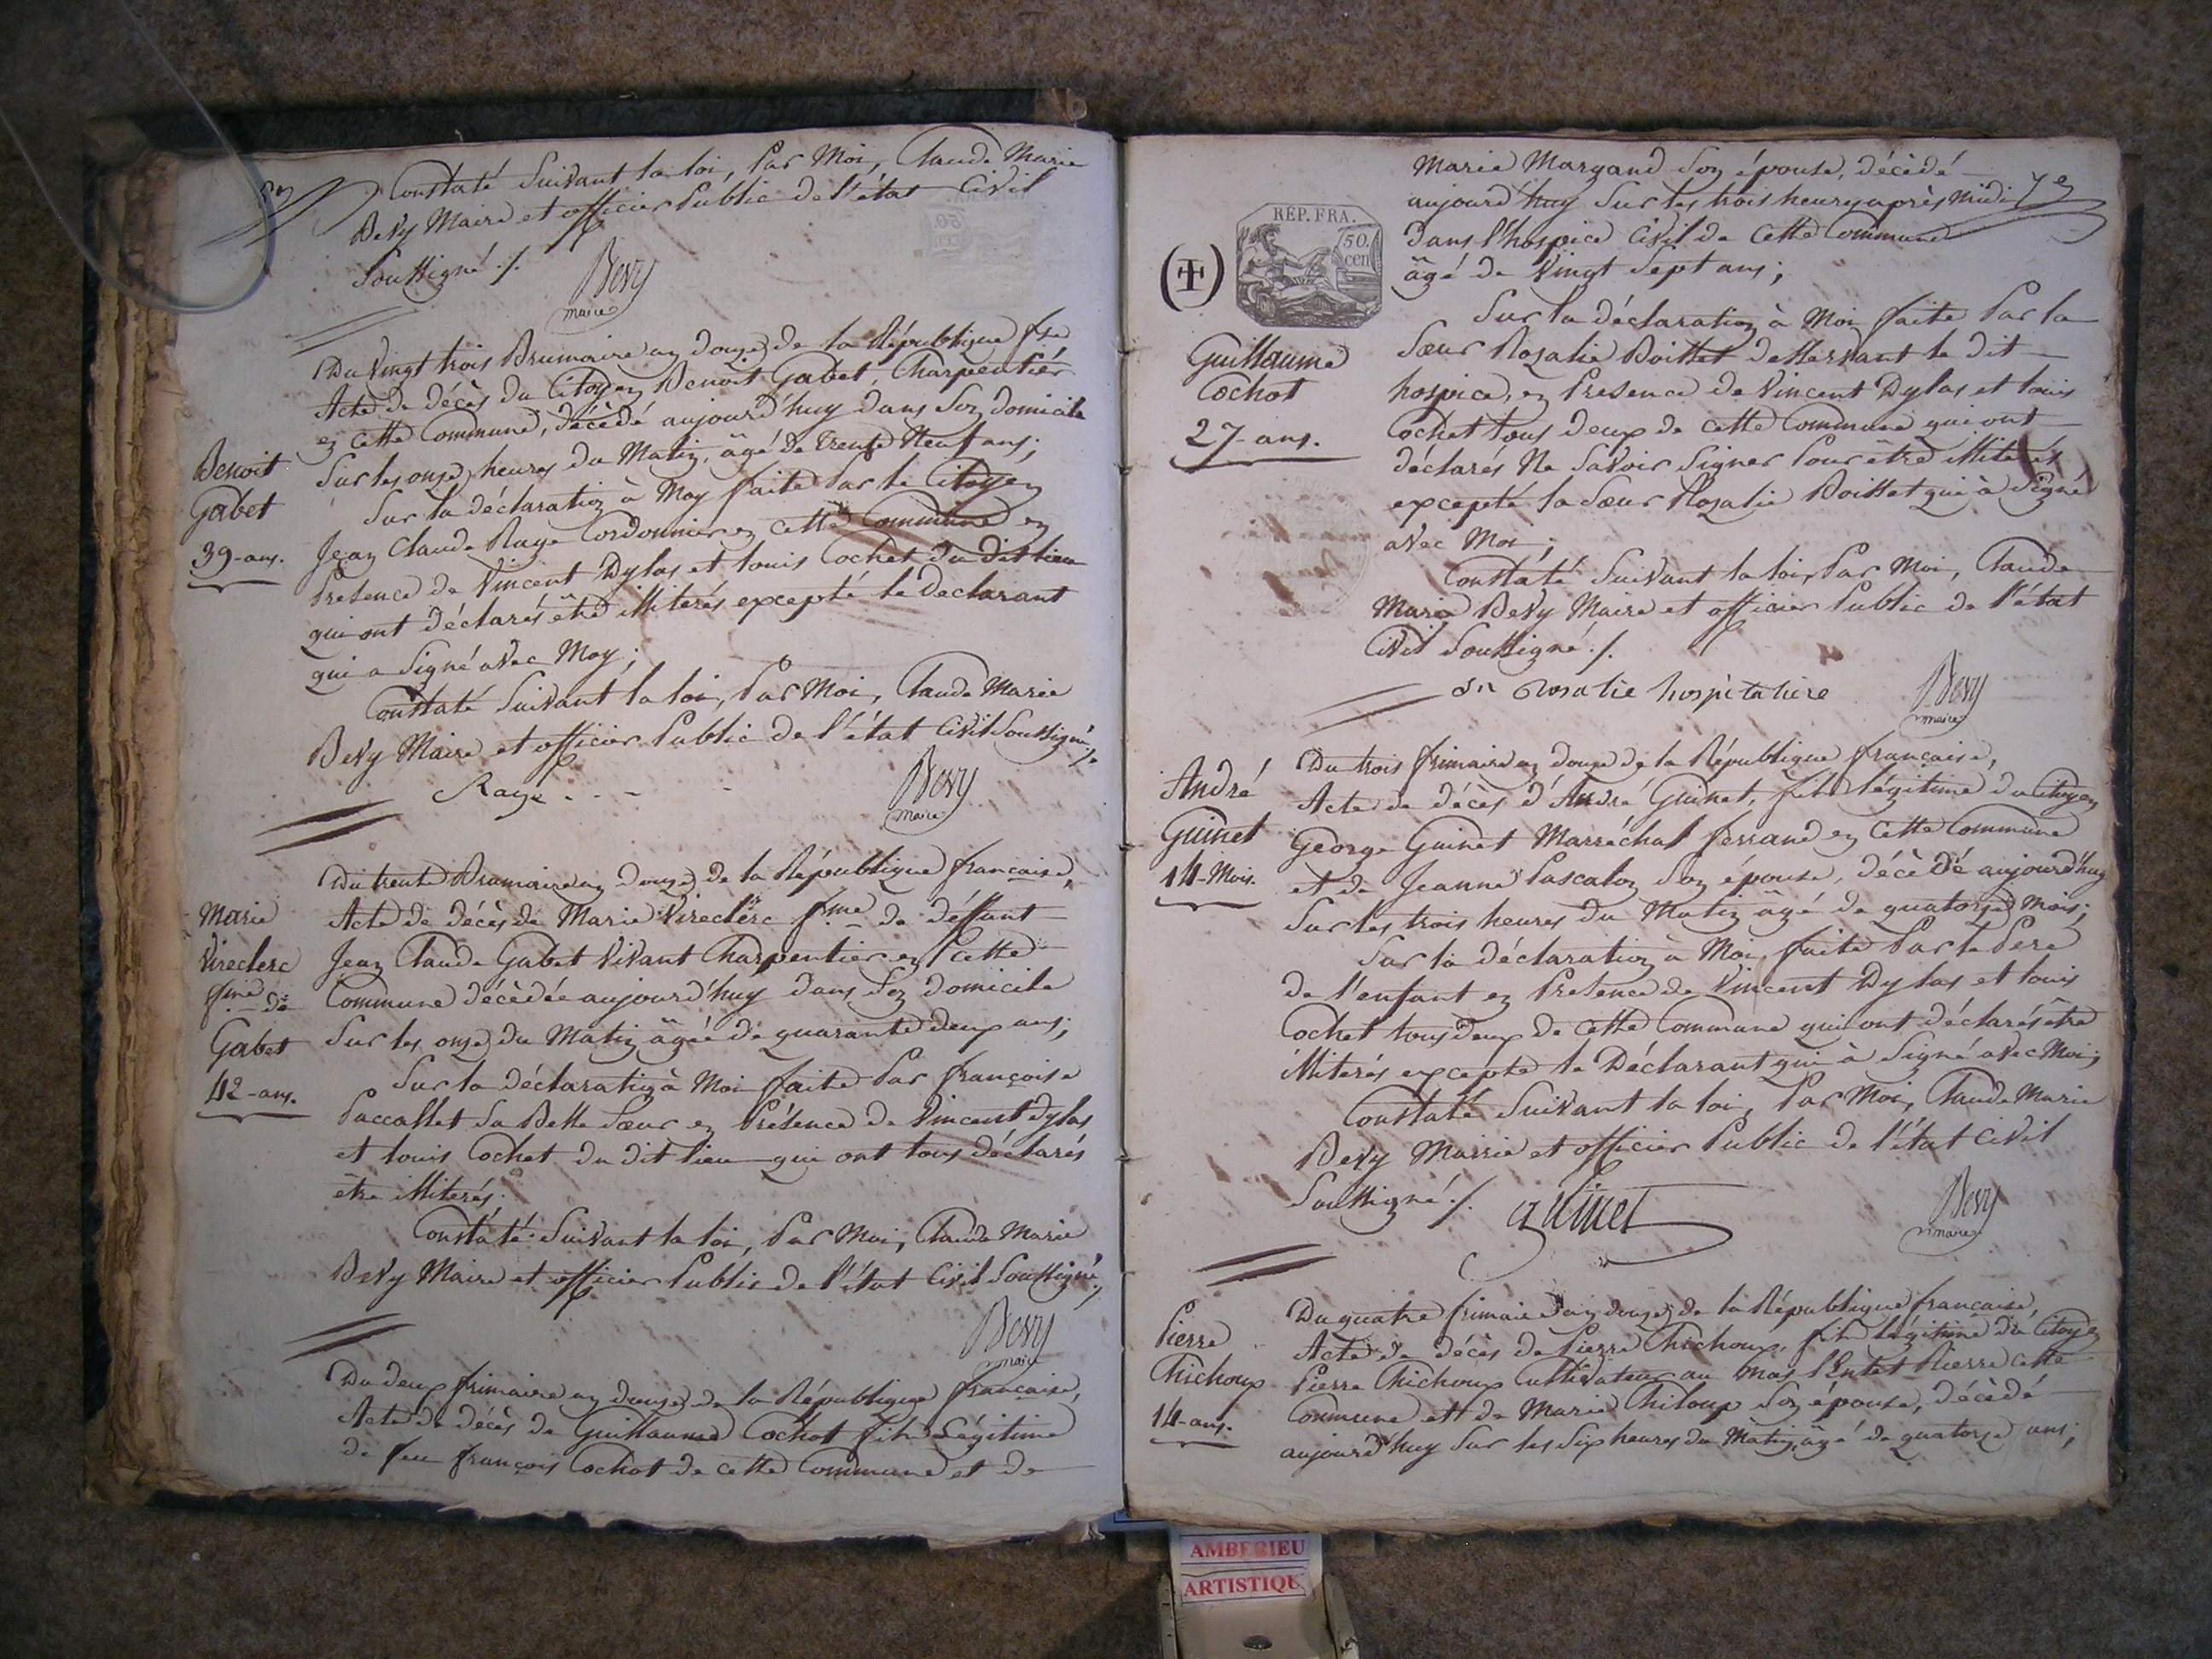 Constaté Suivant la loi, Par Moi, Claude Marie
Bevy Maire et officier Public de l'état Civil
Soussigné ./.
Bevy
maire
Du Vingt trois Brumaire an douze de la République fse
Acte de décès du Citoyen Benoit Gabet, Charpentiér
en cette Commune, décèdé aujourd'huy dans son domicile
Sur les onze heures du Matin, âgé de Trente Neuf ans;
Benoit
Gabet
39-ans.
Sur la déclaration à Moy faite Par le Citoyen
Jean Claude Raye Cordonnier en cette Commune en
Présence de Vincent Dylas et Louis Cochet du dit lieu
qui ont déclarés être illiterés excepté le Declarant
qui a Signé avec Moy;
Constaté Suivant la loi, Par Moi, Claude Marie
Bevy Maire et officier Public de l'état Civil Soussigné ./.
Raye
Bevy
maire
Du trente Brumaire an douze de la République française,
Acte de décès de Marie Vireclerc fme de déffunt
Jean Claude Gabet Vivant Charpentier en Cette
Commune décèdée aujourd'huy dans son domicile
Sur les onze du Matin âgée de quarante deux ans;
Marie
Vireclerc
fme de
Gabet
42-ans.
Sur la déclaration à Moi faite Par françoise
Paccallet Sa Belle Sœur en Présence de Vincent Dylas
et Louis Cochet du dit lieu qui ont tous déclarés
etre illiterés.
Constaté Suivant la loi, Par Moi, Claude Marie
Bevy Maire et officier Public de l'état Civil Soussigné ./.
Bevy
maire
Du deux frimaire an douze de la République française,
Acte de décès de Guillaume Cochot fils Légitime
de feu françois Cochot de cette Commune et de
Marie Margand son épouse, décèdé
aujourd'huy Sur les trois heures après Midi
7e
dans l'hospice Civil de Cette Commune
âgé de Vingt Sept ans;
RÉP. FRA.
50.
cen
Guillaume
Cochot
27-ans.
Sur la déclaration à Moi faite Par la
Sœur Rozalie Boisset desservant le dit
hospice, en Presence de Vincent Dylas et Louis
Cochet tous deux de cette Commune qui ont
déclarés Ne Savoir Signer Pour être illiterés
excepté la Sœur Rozalie Boisset qui à Signé
avec Moi;
Constaté Suivant la loi, Par Moi, Claude
Marie Bevy Maire et officier Public de l'état
Civil Soussigné ./.
Sr Rosalie hospitaliere
Bevy
maire
Du trois frimaire an douze de la République française,
Acte de décès d'André Guinet, fils légitime du Citoyen
George Guinet Marréchal ferrand en Cette Commune
et de Jeanne Pascalon Son épouse, décèdé aujourd'huy
Sur les trois heures du Matin âgé de quatorze Mois;
André
Guinet
14-Mois.
Sur la déclaration à Moi faite Par le Pere
de l'enfant en Presence de Vincent Dylas et Louis
Cochet tous deux de cette Commune qui ont déclarés être
illiterés excepté le Déclarant qui à Signé avec Moi;
Constaté Suivant la loi, Par Moi, Claude Marie
Bevy Mairie et officier Public de l'état Civil
Soussigné ./.
guinet
Bevy
maire
Du quatre frimaire an douze de la République française,
Acte de décès de Pierre Chichoux, fils légitime du Citoyen
Pierre Chichoux Cultivateur au Mas l'Entet Pierre cette
Commune et de Marie Chiloup Son épouse, décèdé
aujourd'huy Sur les Six heures du Matin, âgé de quatorze ans;
Pierre
Chichoux
14-ans.
AMBERIEU
ARTISTIQU